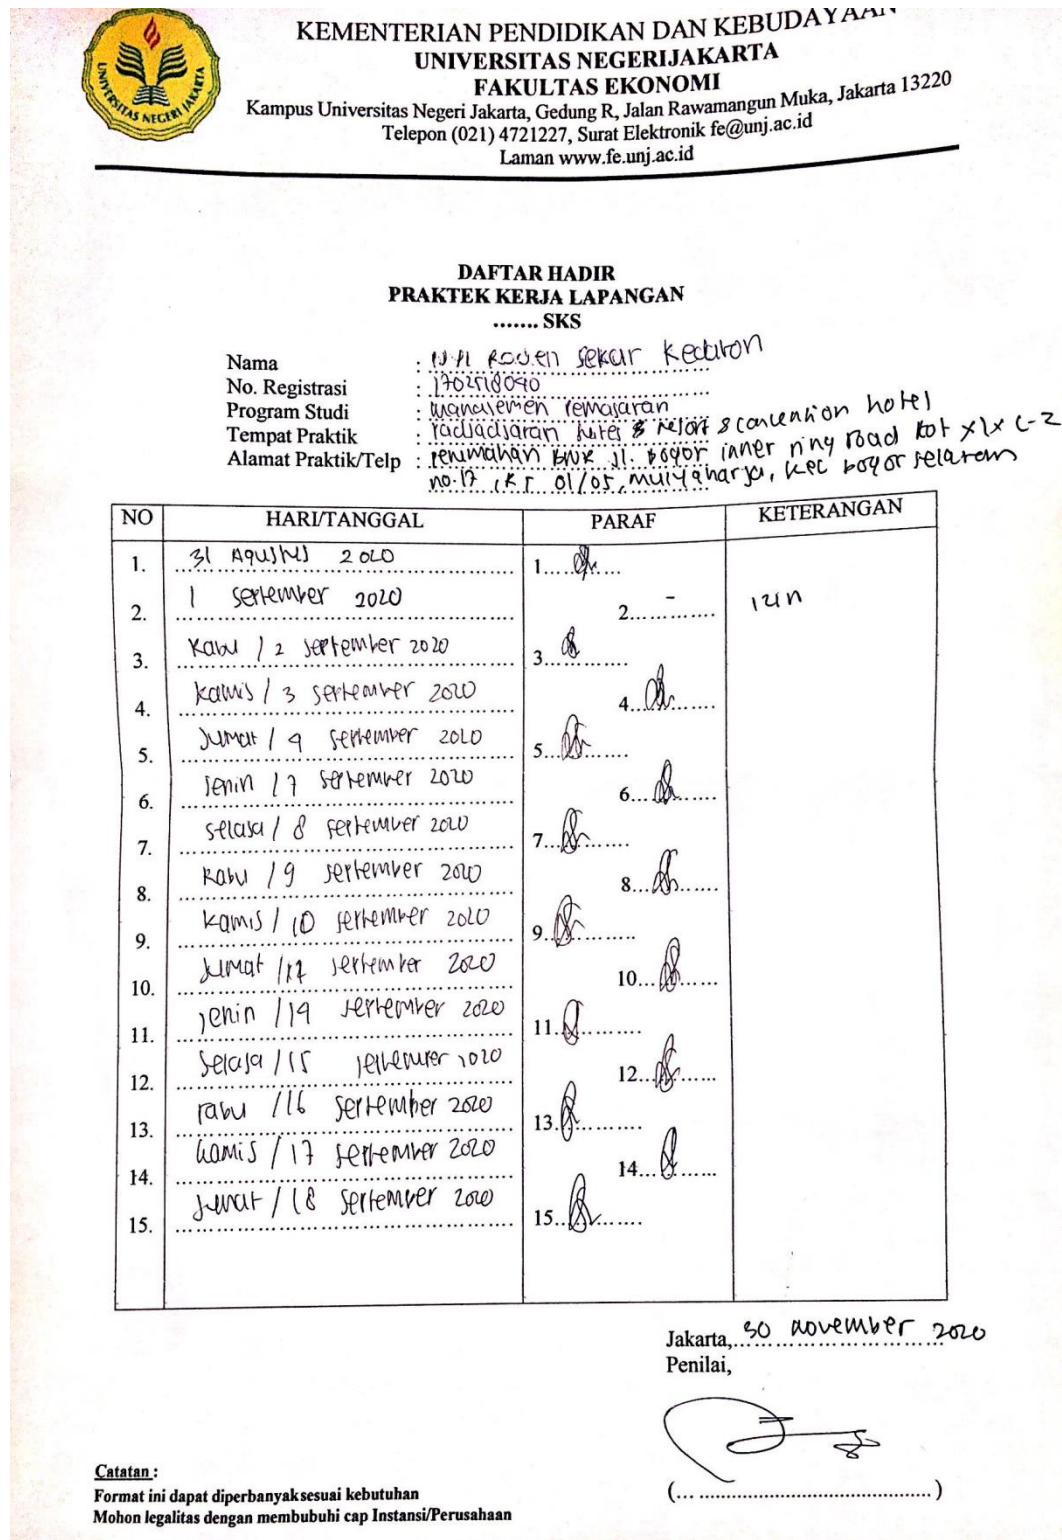 KEMENTERIAN PENDIDIKAN DAN KEBUDAYAAN
UNIVERSITAS NEGERIJAKARTA
FAKULTAS EKONOMI
Kampus Universitas Negeri Jakarta, Gedung R, Jalan Rawamangun Muka, Jakarta 13220
Telepon (021) 4721227, Surat Elektronik fe@unj.ac.id
Laman www.fe.unj.ac.id
UNIVERSITAS NEGERI JAKARTA
DAFTAR HADIR
PRAKTEK KERJA LAPANGAN
....... SKS
Nama : Raden Sekar Kedaton
No. Registrasi : 1702518090
Program Studi : Manajemen Pemasaran
Tempat Praktik : Padjadjaran hotel & resort & convention hotel
Alamat Praktik/Telp : perumahan BNR Jl. Bogor inner ring road Lot XIX C-2
no.17, RT 01/05, Mulyaharja, Kec Bogor Selatan
NO HARI/TANGGAL PARAF KETERANGAN
1. 31 Agustus 2020 1.
2. 1 September 2020 2. - izin
3. Rabu / 2 September 2020 3.
4. Kamis / 3 September 2020 4.
5. Jumat / 4 September 2020 5.
6. Senin / 7 September 2020 6.
7. Selasa / 8 September 2020 7.
8. Rabu / 9 September 2020 8.
9. Kamis / 10 September 2020 9.
10. Jumat / September 2020 10.
11. Senin / 14 September 2020 11.
12. Selasa / 15 September 2020 12.
13. rabu / 16 September 2020 13.
14. kamis / 17 September 2020 14.
15. Jumat / 18 September 2020 15.
Jakarta, 30 November 2020
Penilai,
(... ...)
Catatan :
Format ini dapat diperbanyaksesuai kebutuhan
Mohon legalitas dengan membubuhi cap Instansi/Perusahaan